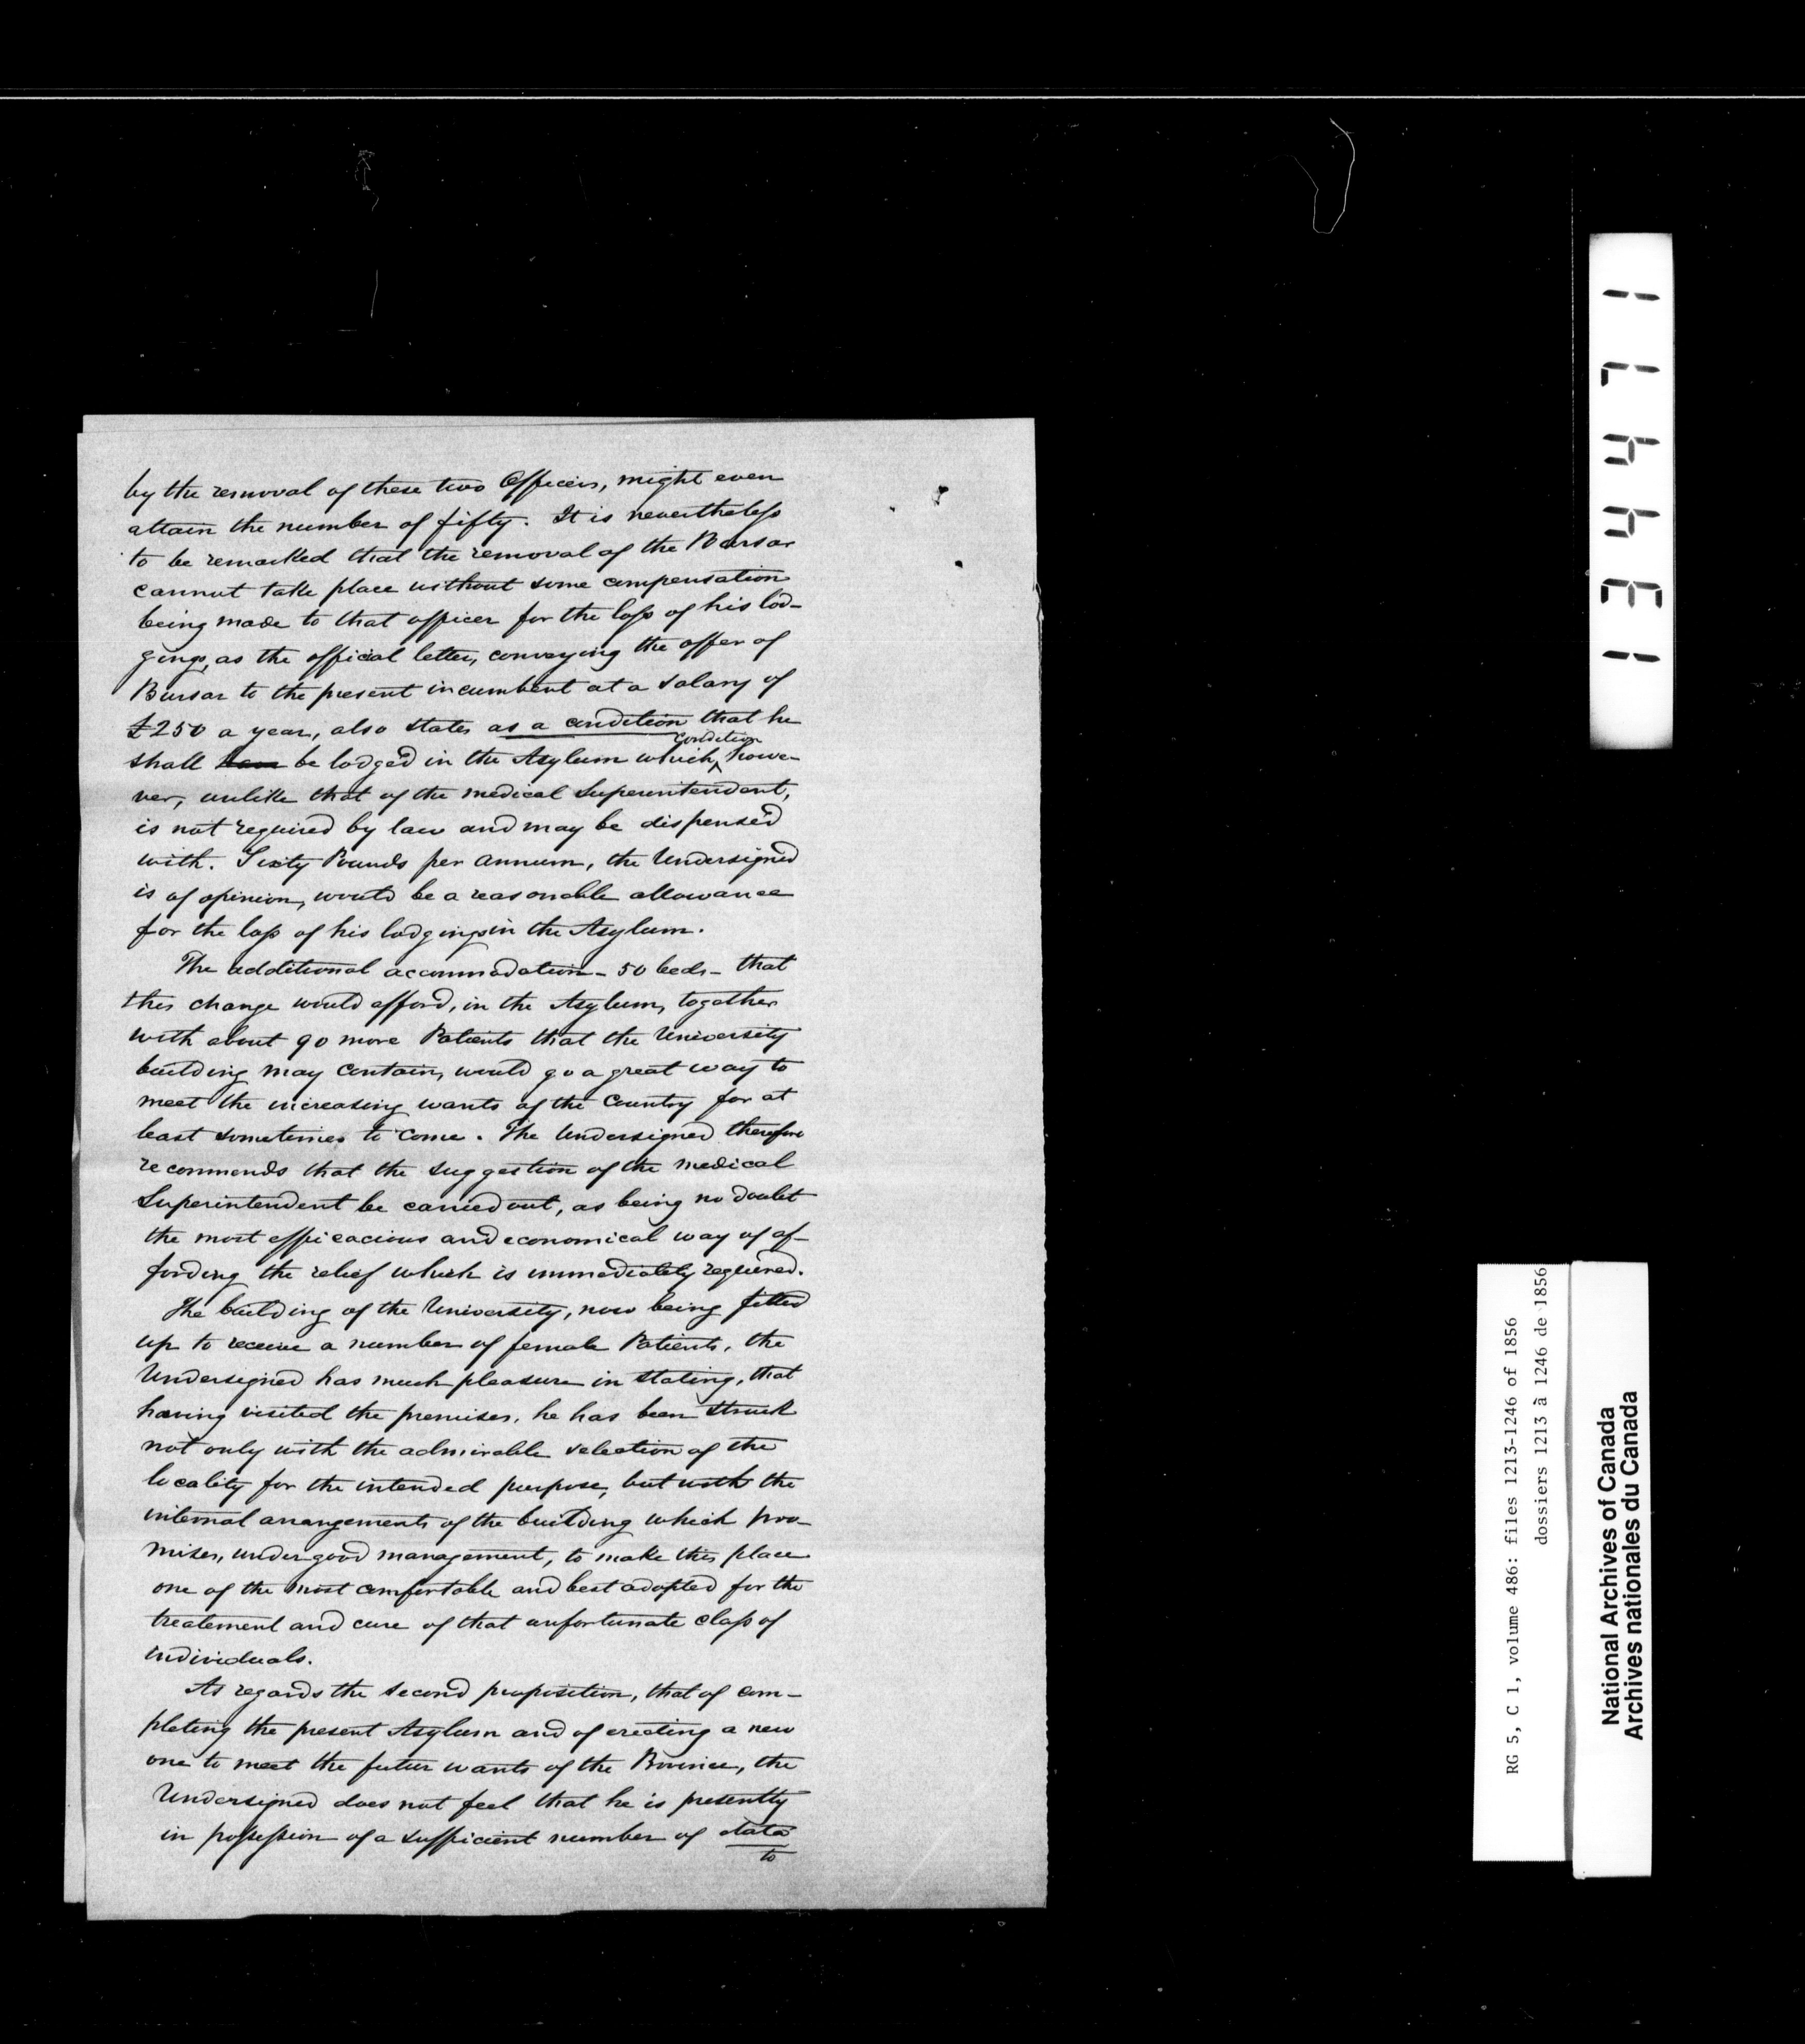 by the removal of these two Officers, might even
attain the number of fifty. It is nevertheless
to be remarked that the removal of the Bursar
cannot take place without some compensation
being made to that officer for the loss of his lod-
gings, as the official letter, conveying the offer of
Bursar to the present incumbent at a salary of
£250 a year, also states as a condition that he
condition
shall have be lodged in the Asylum which, howe-
ver, unlike that of the medical Superintendent,
is not required by law and may be dispensed
with. Sixty Pounds per annum, the Undersigned
is of opinion, would be a reasonable allowance
for the loss of his lodgings in the Asylum.
The additional accommodation - 50 beds - that
this change would afford, in the Asylum, together
with about 90 more Patients that the University
building may contain, would go a great way to
meet the increasing wants of the Country for at
least sometimes to come. The Undersigned therefore
recommends that the suggestion of the medical
Superintendent be carried out, as being no doubt
the most efficacious and economical way of af-
fording the relief which is immediately required.
The building of the University, now being fitted
up to receive a number of female Patients, the
Undersigned has much pleasure in stating, that
having visited the premises, he has been struck
not only with the admirable selection of the
locality for the intended purpose, but with the
internal arrangements of the building which pro-
mises, under good management, to make this place
one of the most comfortable and best adapted for the
treatement and cure of that unfortunate class of
individuals.
As regards the second proposition, that of com-
pleting the present Asylum and of erecting a new
one to meet the futur wants of the Province, the
Undersigned does not feel that he is presently
in possession of a sufficient number of data
to
134471
RG 5, C 1, volume 486: files 1213-1246 of 1856
dossiers 1213 à 1246 de 1856
National Archives of Canada
Archives nationales du Canada